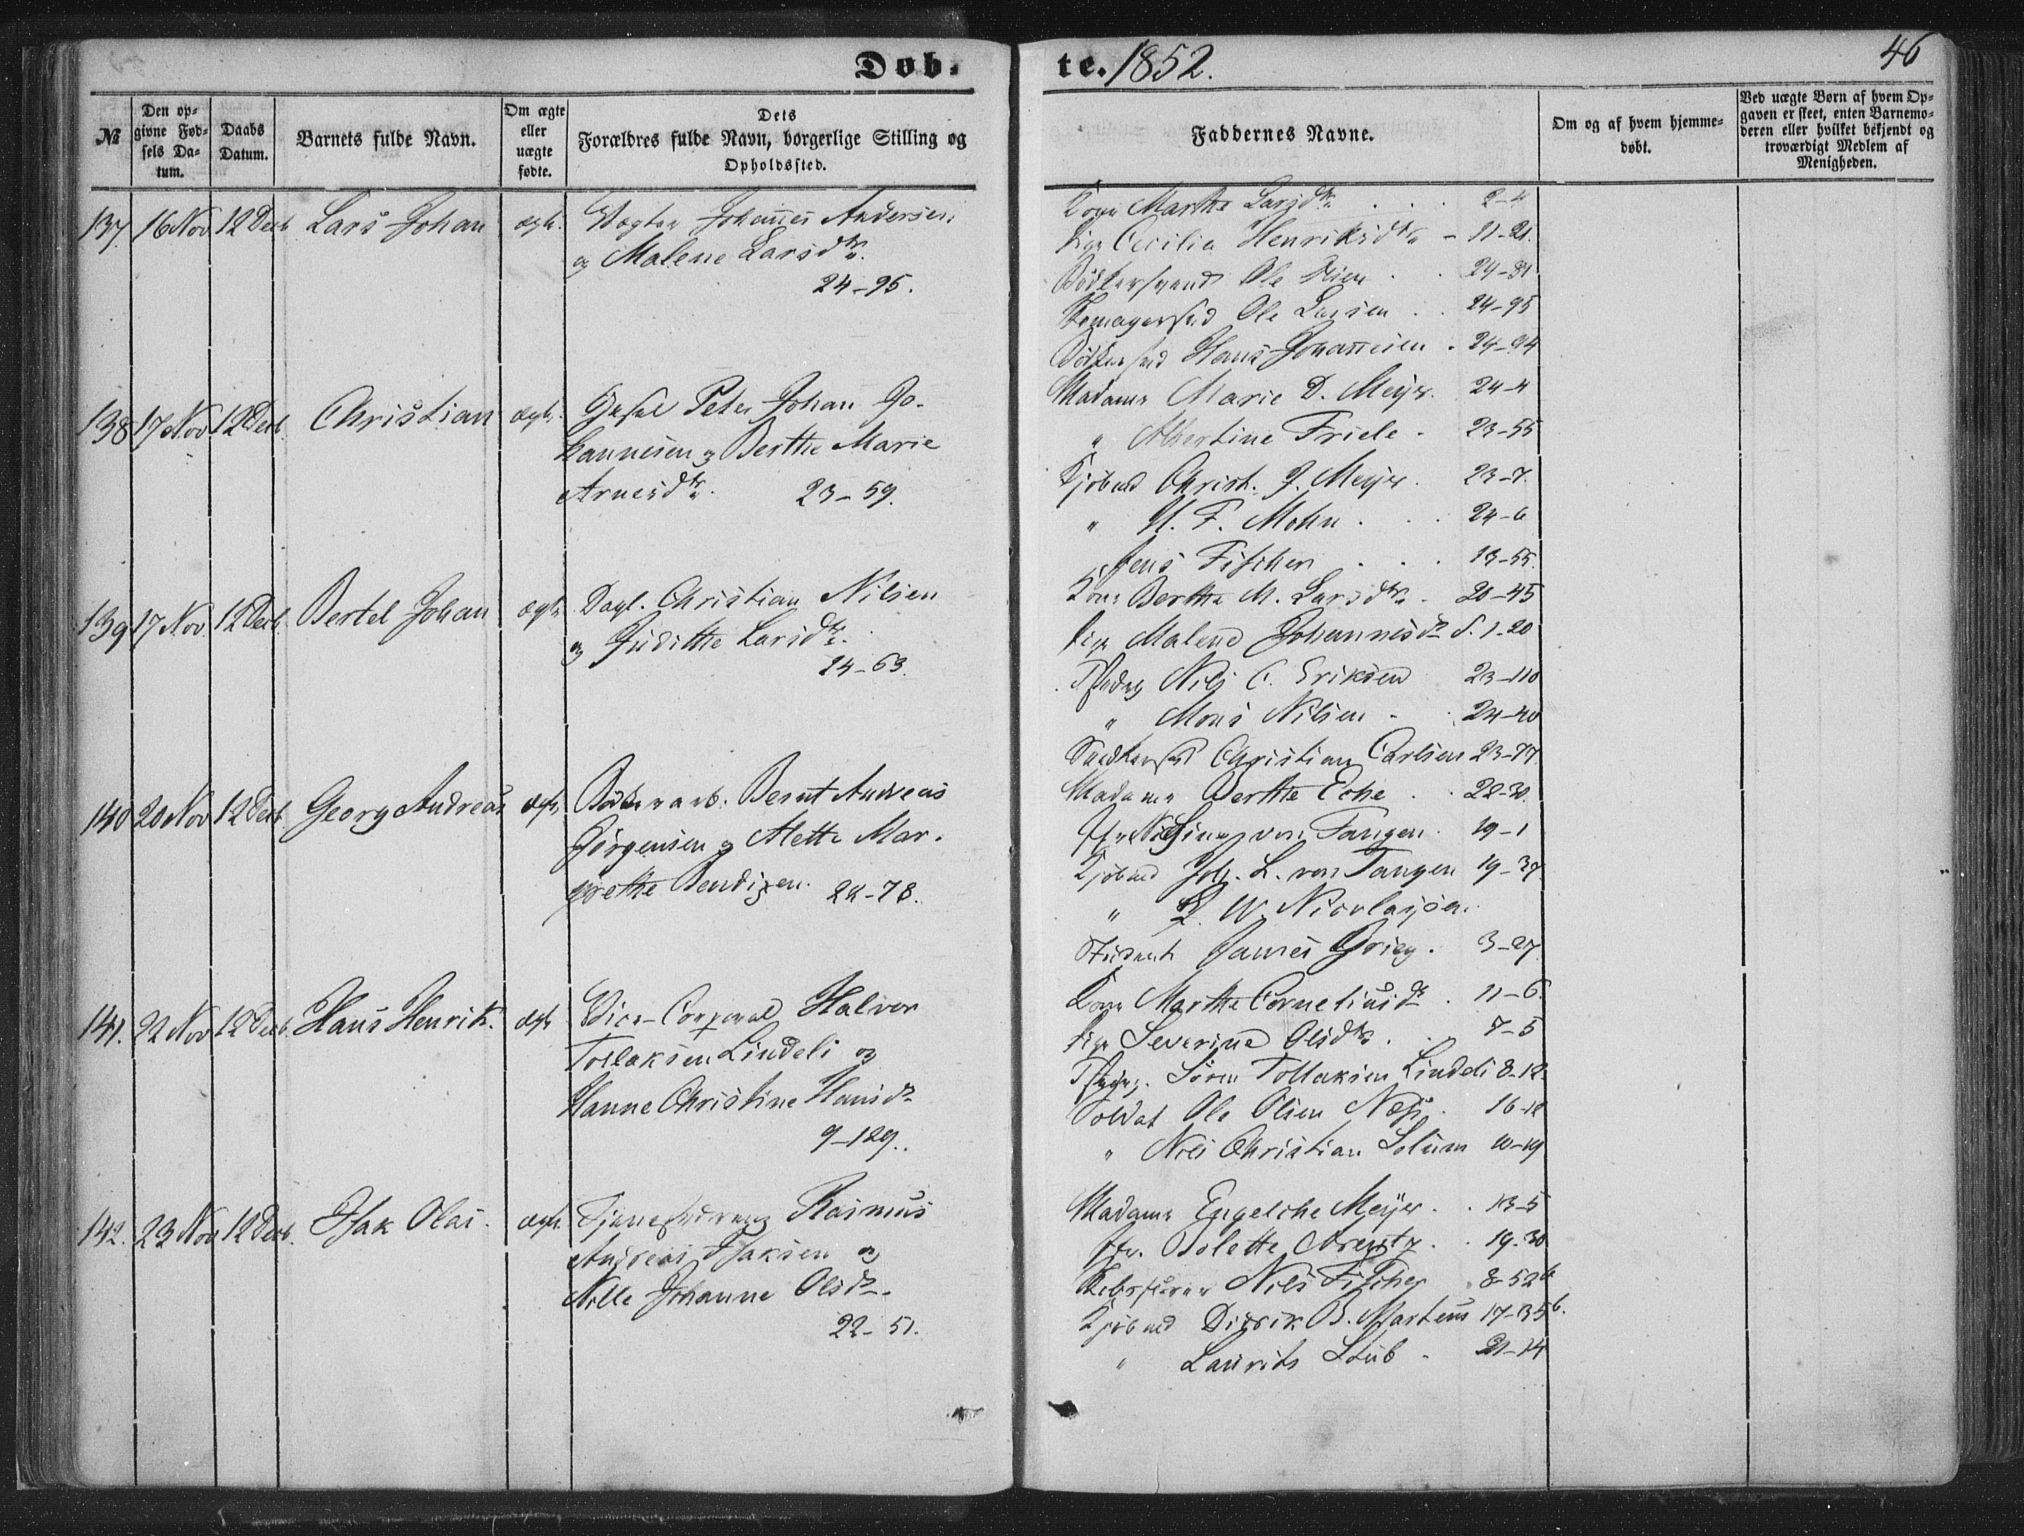 Døb-
te. 1852.
46
№
Den op-
givne Fød-
sels Da-
tum.
Daabs
Datum.
Barnets fulde Navn.
Om ægte
eller
uægte
fødte.
Dets
Forældres fulde Navn, borgerlige Stilling og
Opholdssted.
Faddernes Navne.
Om og af hvem hjemme-
døbt.
Ved uægte Børn af hvem Op-
gaven er skeet, enten Barnemo-
deren eller hvilket bekjendt og
troværdigt Medlem af
Menigheden.
137. 16 Nov 12 Decb Lars Johan ægte. Vægter Johannes Andersen
og Malene Larsdtr.
24-95.
Kone Marthe Larsdtr. 2-4
Pige Cecilia Henriksdtr - 11-21.
Bødkersvend Ole
24-21
Ole Larsen 24-95
Hans Johannesen . 24-94
138 17 Nov 12 Decb. Christian ægte. Peter Johan Jo-
hannesen og Berthe Marie
Arnesdtr. 23-59.
Madame Marie D. Meyer. 24-4
" Albertine Friele - 23-55
Kjøbmd Christ. J. Meyer. 23-7.
" H. F. Mohn . 24-6
Jens Fischer 13-55.
139 17 Nov. 12 Decb. Bertel Johan ægte Dagl. Christian Nilsen
og Judithe Larsdtr.
24-63.
Kone Berthe M. Larsdtr. 20-45
Pige Malene Johannesdtr S. 1-20
Nils C. Eriksen 23-110
" Mons Nilsen - 24-40
Christian Carlsen 23-77
140 20 Nov 12 Decb Georg Andreas ægte Bødkerarb. Bernt Andreas
Jørgensen og Alette Mar-
grethe Bendixen. 22-78.
Madame Berthe Eche . 22-30.
von Tangen. 19-1
Kjøbmd Joh. L. von Tangen 19-37
" W. Nicolaysen.
Student James Grieg. 3-27
141. 22 Nov 12 Decb. Hans Henrik. ægte Vice-Corporal Halvor
Tollaksen Lindeli og
Hanne Christine Hansdtr
9-129.
Kone Marthe Corneliusdtr . 11-6.
Pige Severine Olsdtr. 7-5
Søren Tollaksen Lindeli 8-12.
Soldat Ole Olsen Næss. 16-18
" Nils Christian Solum 10-19
142. 23 Nov 12 Decb. Isak Olai. ægte. Rasmus
Andreas Isaksen og
Nille Johanne Olsdtr.
22-51.
Madame Engelche Meyer. . 13-5
Jfr. Bolette Arentz. 19-30
Nils Fischer 8-52b
Kjøbmd Didrik B. Martens 17-35b.
" Laurits Stub - 21-14